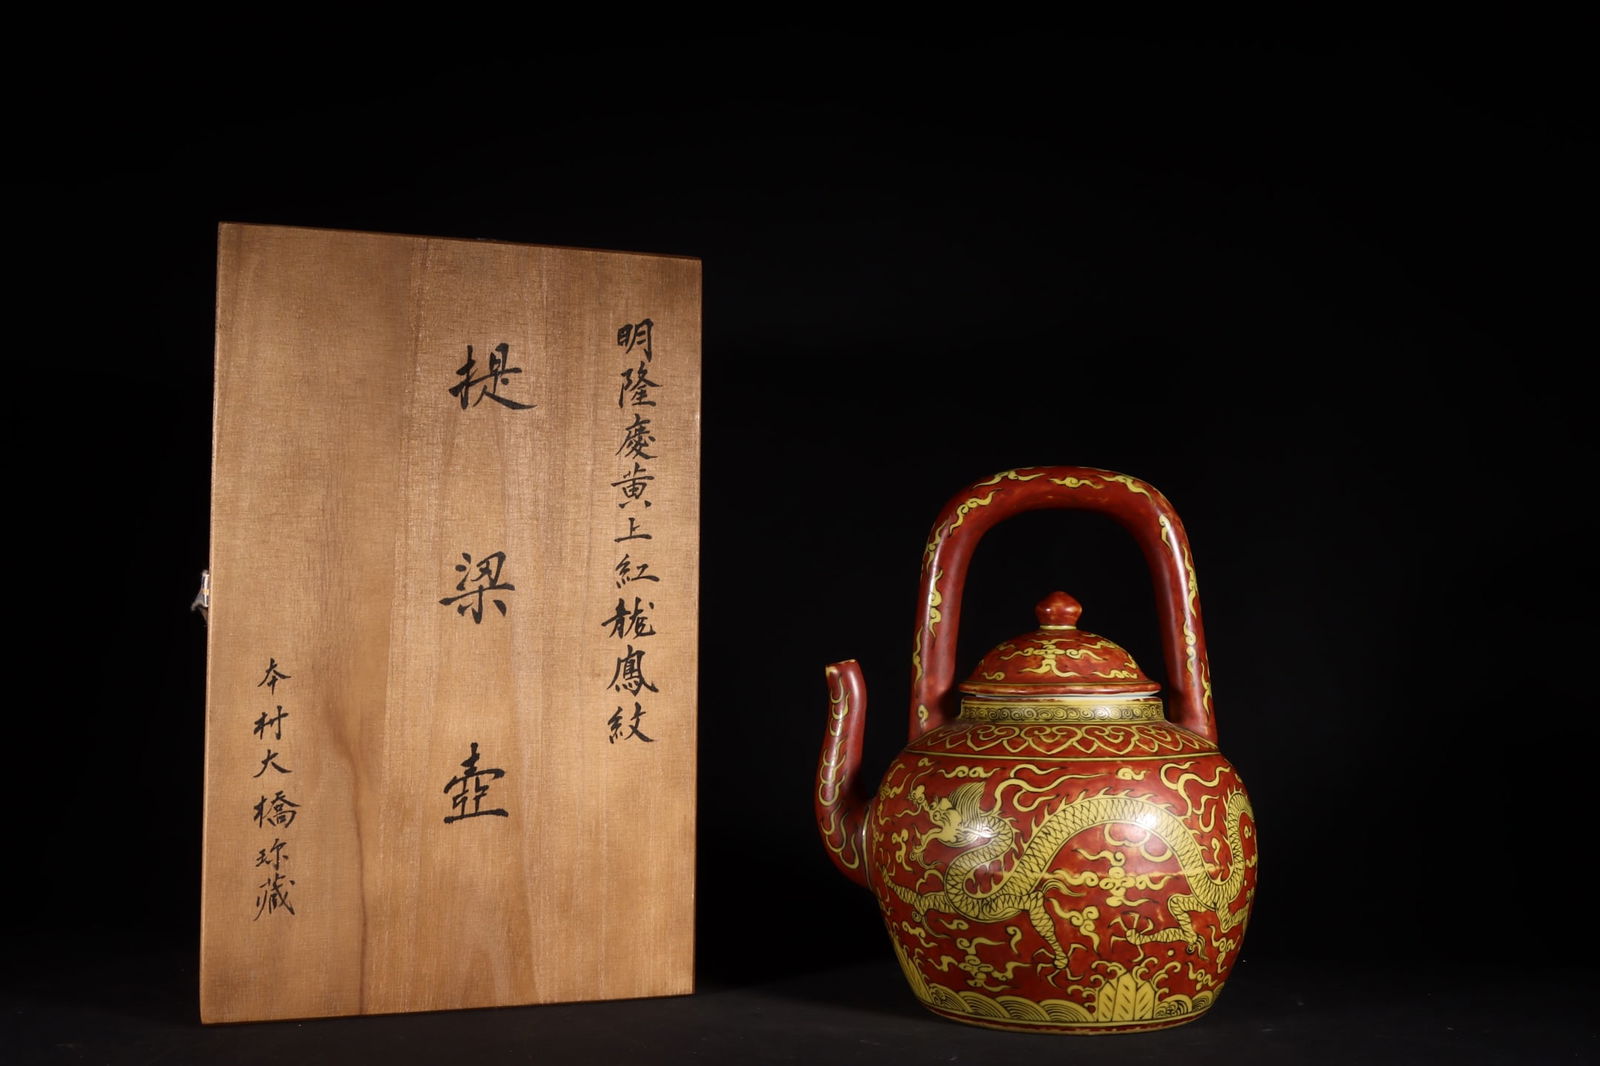 明隆慶黄上紅龍鳳紋
提梁壺
本村大橋珎藏